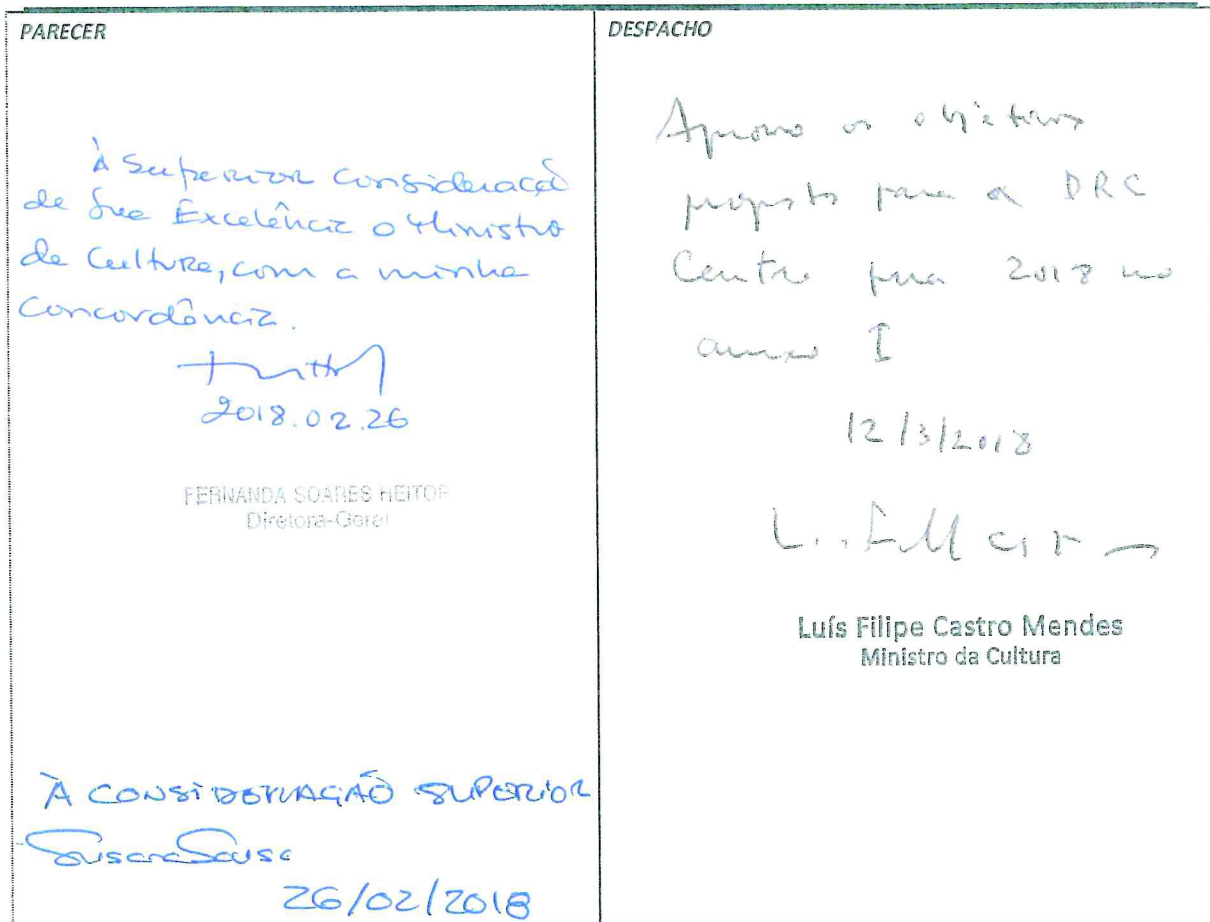 PARECER
À Superior consideração
de Sua Excelência o Ministro
da Cultura, com a minha
concordância.
2018.02.26
FERNANDA SOARES HEITOR
Diretora-Geral
À CONSIDERAÇÃO SUPERIOR
Susana Sousa
26/02/2018
DESPACHO
Aprovo os objetivos
propostos para a DRC
Centro para 2018 no
anexo I
12/3/2018
Luís Filipe Castro Mendes
Ministro da Cultura